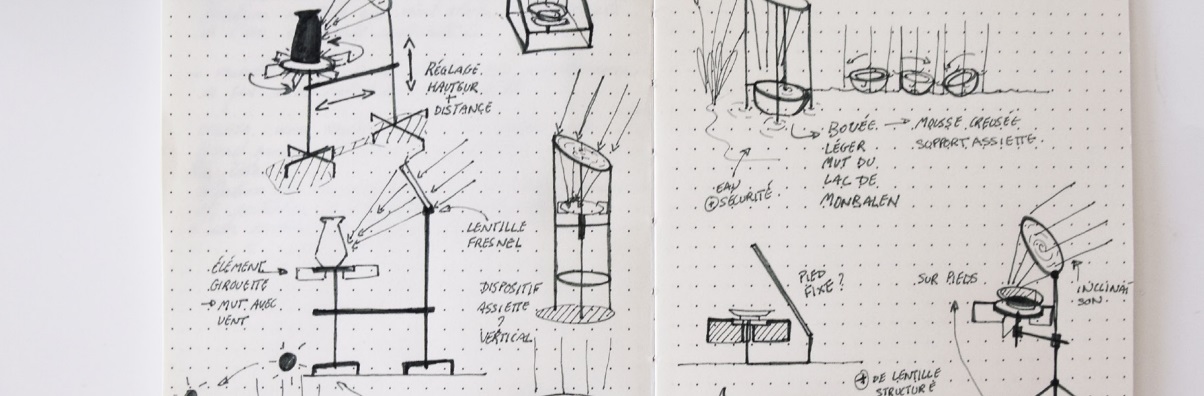 RÉGLAGE
HAUTEUR
+
DISTANCE
LENTILLE
FRESNEL
ÉLÉMENT
GIROUETTE
→ MUT. AVEC
VENT
DISPOSITIF
ASSIETTE
?
VERTICAL
BOUÉE → MOUSSE CREUSÉE
SUPPORT ASSIETTE.
LÉGER
MUT DU
LAC DE
MONBALEN
EAU
+ SÉCURITÉ.
PIED
FIXE?
SUR PIEDS
INCLINAI
SON.
+ DE LENTILLE
STRUCTURE